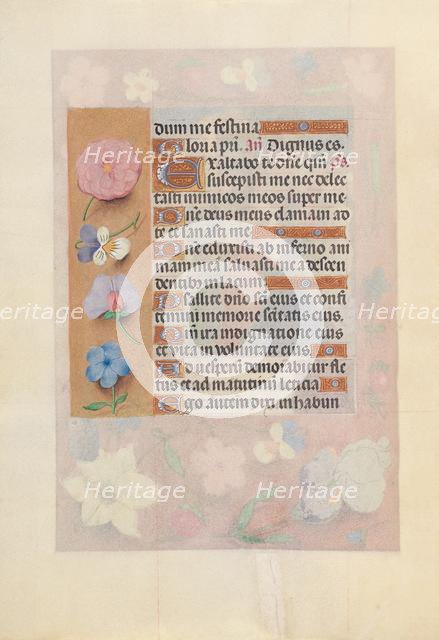 dum me festina
Gloria pri. an Dignus es.
xaltabo te dne qm ps.
suscepisti me nec delec
tasti inimicos meos super me
Dne deus meus clamavi ad
te et sanasti me
Dne eduxisti ab inferno ani
mam mea salvasti me a descen
dentibus in lacum
Psallite dno sci eius et confi
temini memorie scitatis eius.
ira in indignatione eius
et vita in volūtate eius
Ad vesperū demorabitur fle
tus et ad matutinū leticia
Ego autem dixi in habun
Heritage
Heritage
Heritage
Heritage
Heritage
Heritage
Heritage
Heritage